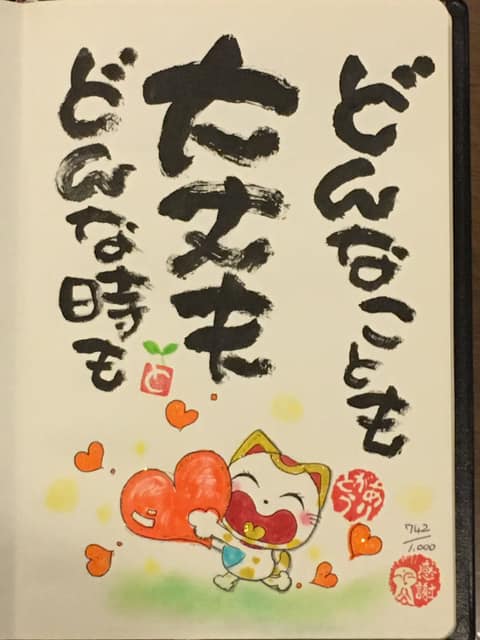 どんなことも
大丈夫
どんな時も
と
742
1.000
感謝